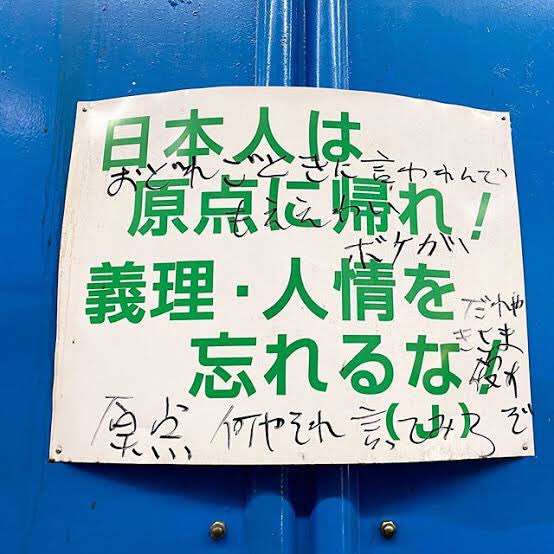 日本人は
おどれごときに言われんで
原点に帰れ!
もええわい
ボケがい
義理・人情を
だれや
きさま
忘れるな!
(山)
原点 何やそれ 言てみろ ぞ